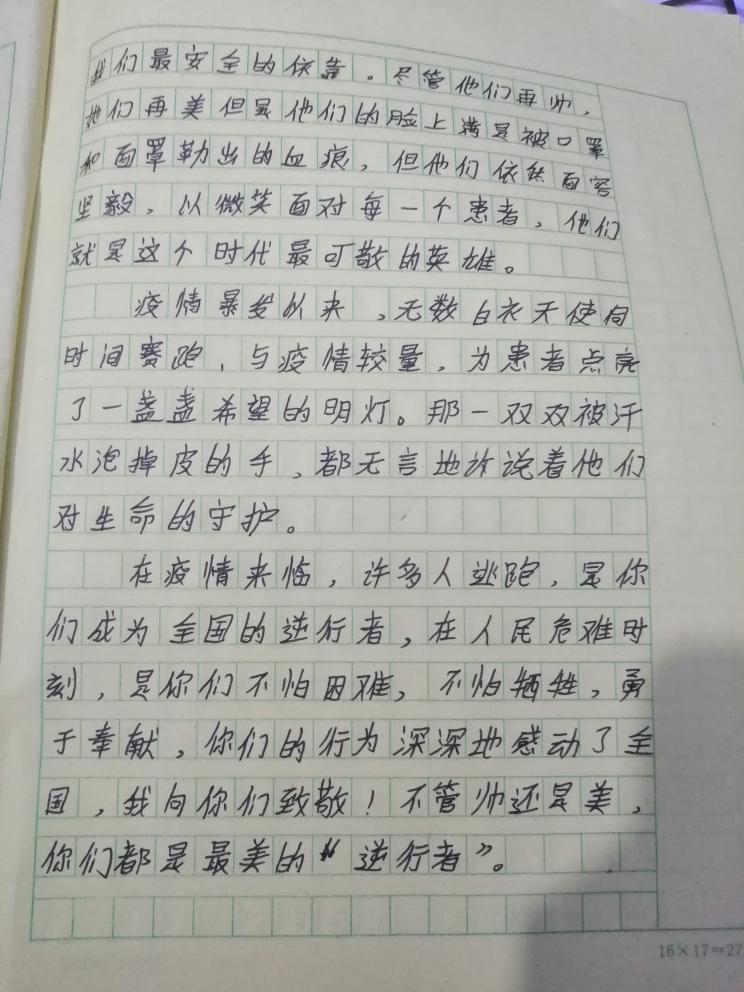 我们最安全的依靠。尽管他们再帅，
她们再美但是他们的脸上满是被口罩
和面罩勒出的血痕，但他们依然面容
坚毅，以微笑面对每一个患者，他们
就是这个时代最可敬的英雄。
疫情暴发以来，无数白衣天使同
时间赛跑，与疫情较量，为患者点亮
了一盏盏希望的明灯。那一双双被汗
水泡掉皮的手，都无言地诉说着他们
对生命的守护。
在疫情来临，许多人逃跑，是你
们成为全国的逆行者，在人民危难时
刻，是你们不怕困难，不怕牺牲，勇
于奉献，你们的行为深深地感动了全
国，我向你们致敬！不管帅还是美，
你们都是最美的“逆行者”。
16×17=27